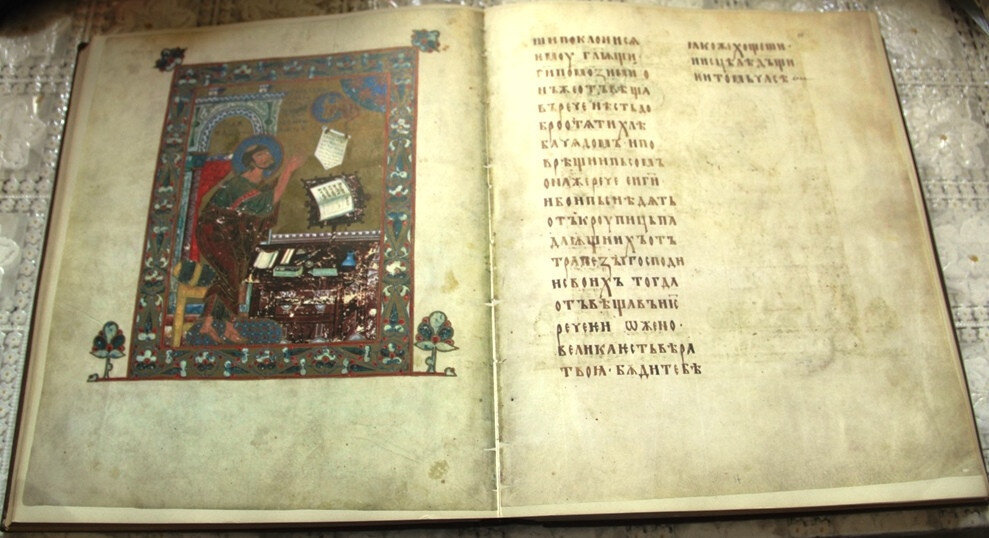 ши поклони сѧ
ѥмоу глющи·
ги помози ми о
нъ же отъвѣща
въ рече нѣсть до
бро отѧти хлѣ
ба чѧдомъ· и по
врѣщи и пьсомъ
она же рече еи ги
ибо и пьси ѣдѧть
отъ кроупиць па
даѭщиихъ отъ
трапезы господи
и своихъ тогда
отъвѣщавъ іис
рече ѥи ѡ жено·
велика ѥсть вѣра
твоꙗ· бѫди тебѣ
ꙗкоже хощеши·
и исцѣлѣ дъщи
ѥи томь часѣ